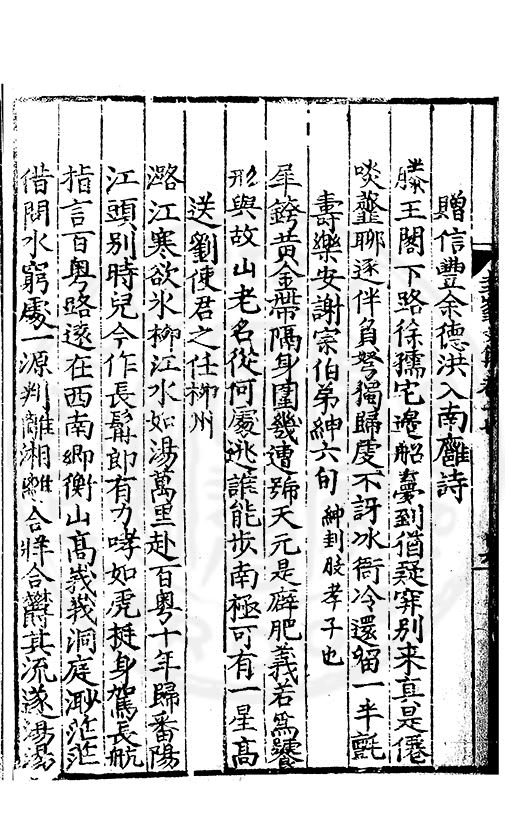 贈信豐余德洪入南廱詩
滕王閣下路徐孺宅邊船夢到猶疑穽別來真是僊
啖虀聊逐伴負弩獨歸虔不訝冰銜冷還貂一半氈
壽樂安謝宗伯弟紳六旬 紳刲股孝子也
犀鎊黃金帶隔身圍幾遭號天元是癖肥義若為饕
形與故山老名從何處逃誰能步南極可有一星高
送劉使君之任柳州
潞江寒欲氷柳江水如湯萬里赴百粤十年歸番陽
江頭別時兒今作長髯郎有力哮如虎挺身駕長航
指言百粤路遠在西南鄉衡山高峩峩洞庭渺茫茫
借問水窮處一源判離湘離合牂合欝其流遂湯湯